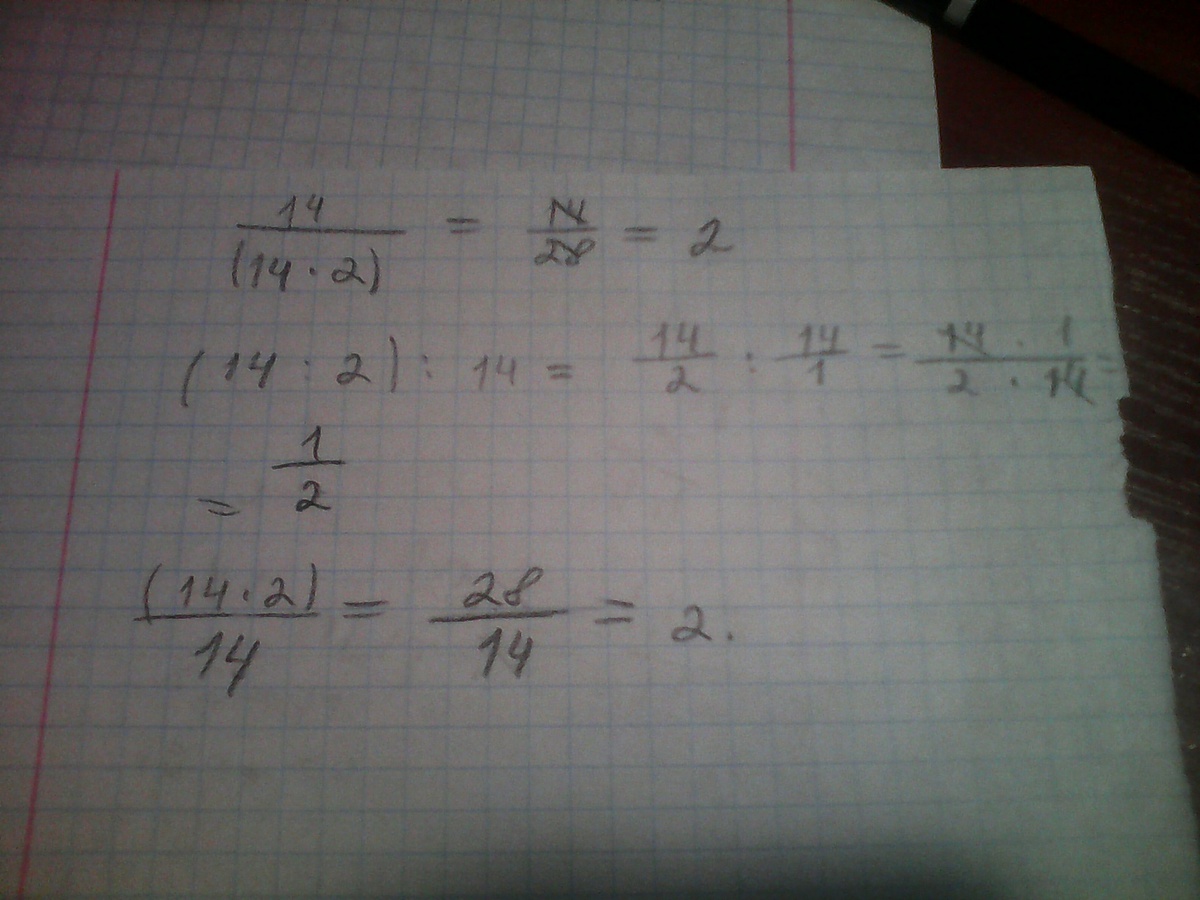 14/(14 · 2) = 14/28 = 2
(14 : 2) : 14 = 14/2 : 14/1 = 14 · 1/2 · 14 =
= 1/2
(14 · 2)/14 = 28/14 = 2.